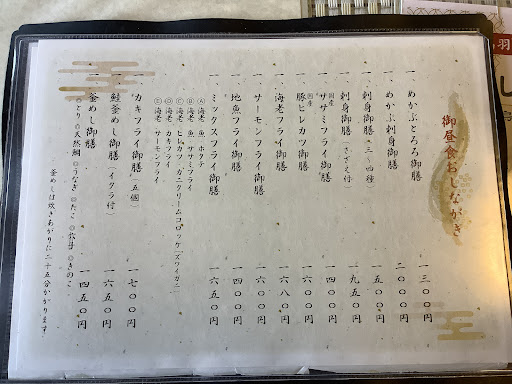 御昼食おしながき
一 めかぶとろろ御膳 一三〇〇円
一 めかぶ刺身御膳 二〇〇〇円
一 刺身御膳(三〜四種) 一五〇〇円
一 刺身御膳(さざえ付) 一九五〇円
一 国産ササミフライ御膳 一四〇〇円
一 国産豚ヒレカツ御膳 一六〇〇円
一 海老フライ御膳 一六八〇円
一 サーモンフライ御膳 一六〇〇円
一 地魚フライ御膳 一四〇〇円
一 ミックスフライ御膳 一六五〇円
Ⓐ海老・魚・ホタテ
Ⓑ海老・魚・ササミフライ
Ⓒ海老・ヒレカツ・カニクリームコロッケ(ズワイガニ)
Ⓓ海老・カキフライ
Ⓔ海老・サーモンフライ
一 カキフライ御膳(五個) 一七〇〇円
一 鮭釜めし御膳(イクラ付) 一六五〇円
一 釜めし御膳 一四五〇円
◎とり ◎天然鯛 ◎うなぎ ◎たこ ◎牧牛 ◎きのこ
釜めしは炊きあがりに二十五分かかります